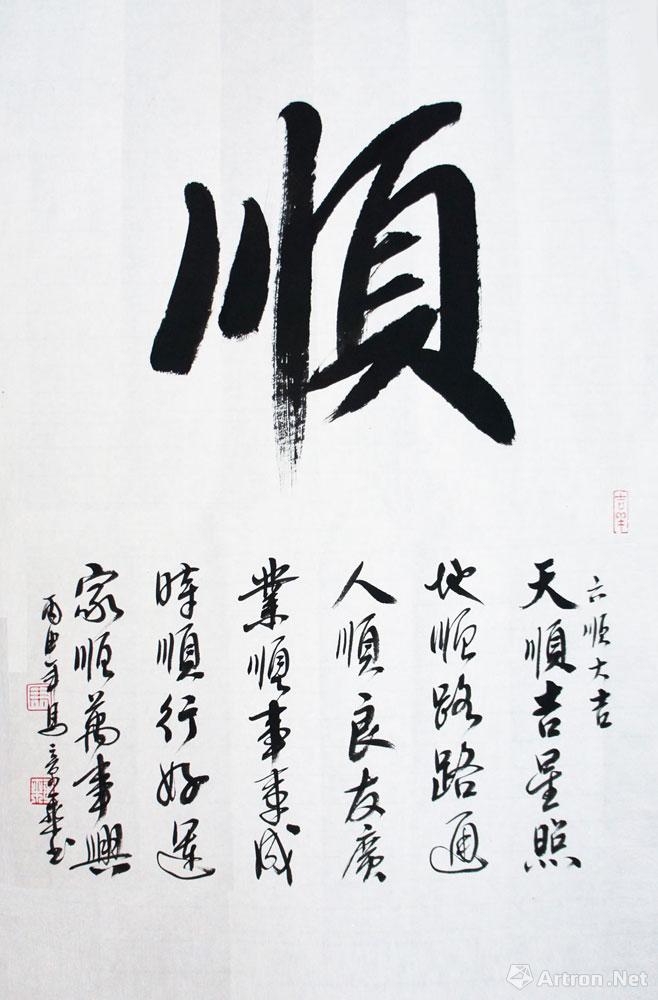 順
六順大吉
天順吉星照
地順路路通
人順良友廣
業順事事成
時順行好運
家順萬事興
丙申年馬章乘书
吉羊
Artron.Net